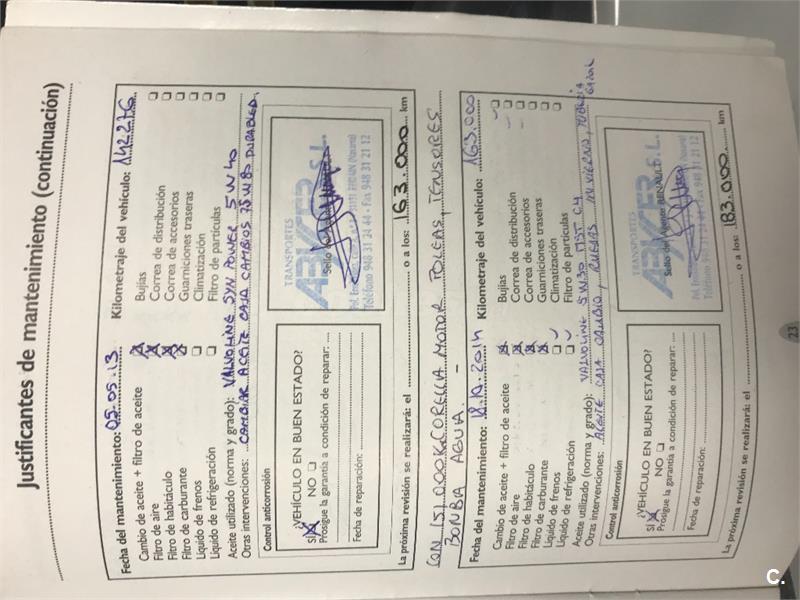 Justificantes de mantenimiento (continuación)
Fecha del mantenimiento: 09.05.13 Kilometraje del vehículo: 142.276
Cambio de aceite + filtro de aceite
Filtro de aire
Filtro de habitáculo
Filtro de carburante
Líquido de frenos
Líquido de refrigeración
Bujías
Correa de distribución
Correa de accesorios
Guarniciones traseras
Climatización
Filtro de partículas
Aceite utilizado (norma y grado): VALVOLINE SYN POWER 5W40
Otras intervenciones: CAMBIAR ACEITE CAJA CAMBIOS 75W80 DURABLED.
Control anticorrosión
¿VEHÍCULO EN BUEN ESTADO?
SÍ NO
Prosigue la garantía a condición de reparar:
Fecha de reparación:
TRANSPORTES
S.L.
Teléfono 948 31 24 44 - Fax 948 31 21 12
La próxima revisión se realizará: el o a los: 163.000 km
CON 151.000K CORREA MOTOR POLEAS, TENSORES
BONBA AGUA. -
Fecha del mantenimiento: 18.10.2014 Kilometraje del vehículo: 163.000
Cambio de aceite + filtro de aceite
Filtro de aire
Filtro de habitáculo
Filtro de carburante
Líquido de frenos
Líquido de refrigeración
Bujías
Correa de distribución
Correa de accesorios
Guarniciones traseras
Climatización
Filtro de partículas
Aceite utilizado (norma y grado): VALVOLINE 5W30 MST C4
Otras intervenciones: ACEITE CAJA CAMBIO, RUEDAS INVIERNO,
Control anticorrosión
¿VEHÍCULO EN BUEN ESTADO?
SÍ NO
Prosigue la garantía a condición de reparar:
Fecha de reparación:
TRANSPORTES
S.L.
Sello del Agente RENAULT
Teléfono 948 31 24 44 - Fax 948 31 21 12
La próxima revisión se realizará: el o a los: 183.000 km
23
C.